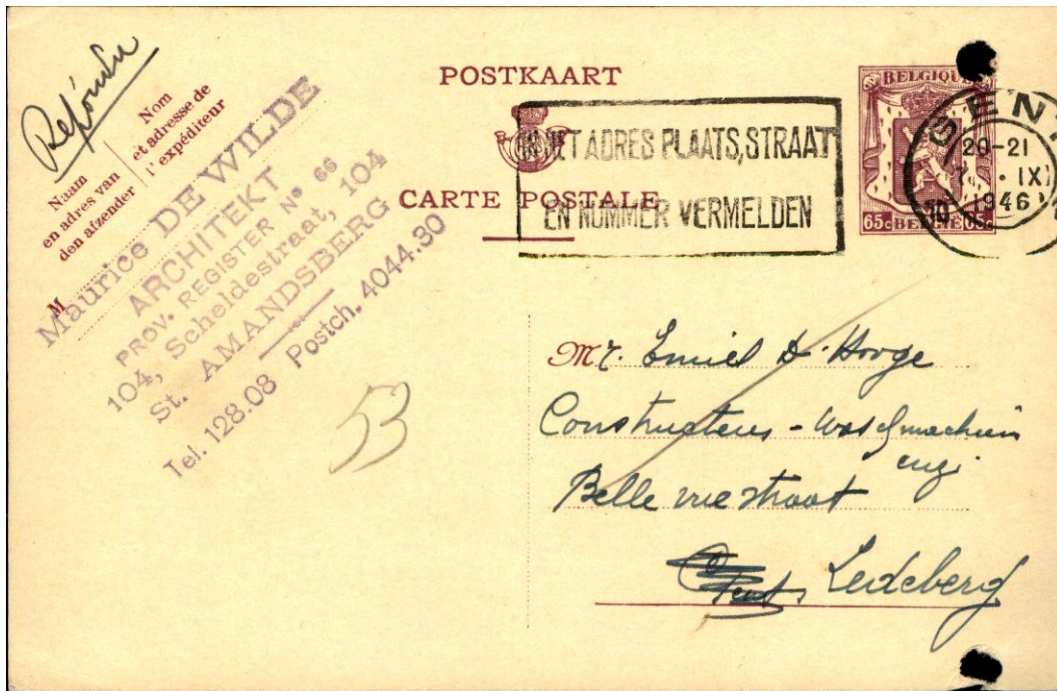 Répondu
Nom
et adresse de
l'expéditeur
Naam
en adres van
den afzender
M
Maurice DE WILDE
ARCHITEKT
PROV. REGISTER Nº 66
104, Scheldestraat, 104
St. AMANDSBERG
Tel. 128.08 Postch. 4044.30
53
POSTKAART
CARTE POSTALE
IN HET ADRES PLAATS, STRAAT
EN NUMMER VERMELDEN
BELGIQUE
65c BELGIË 65c
GENT
20-21
IX
1946
Mr. Emiel D'Hooge
Constructeur - Waschmachien
enz.
Belle vue straat
Gent Ledeberg